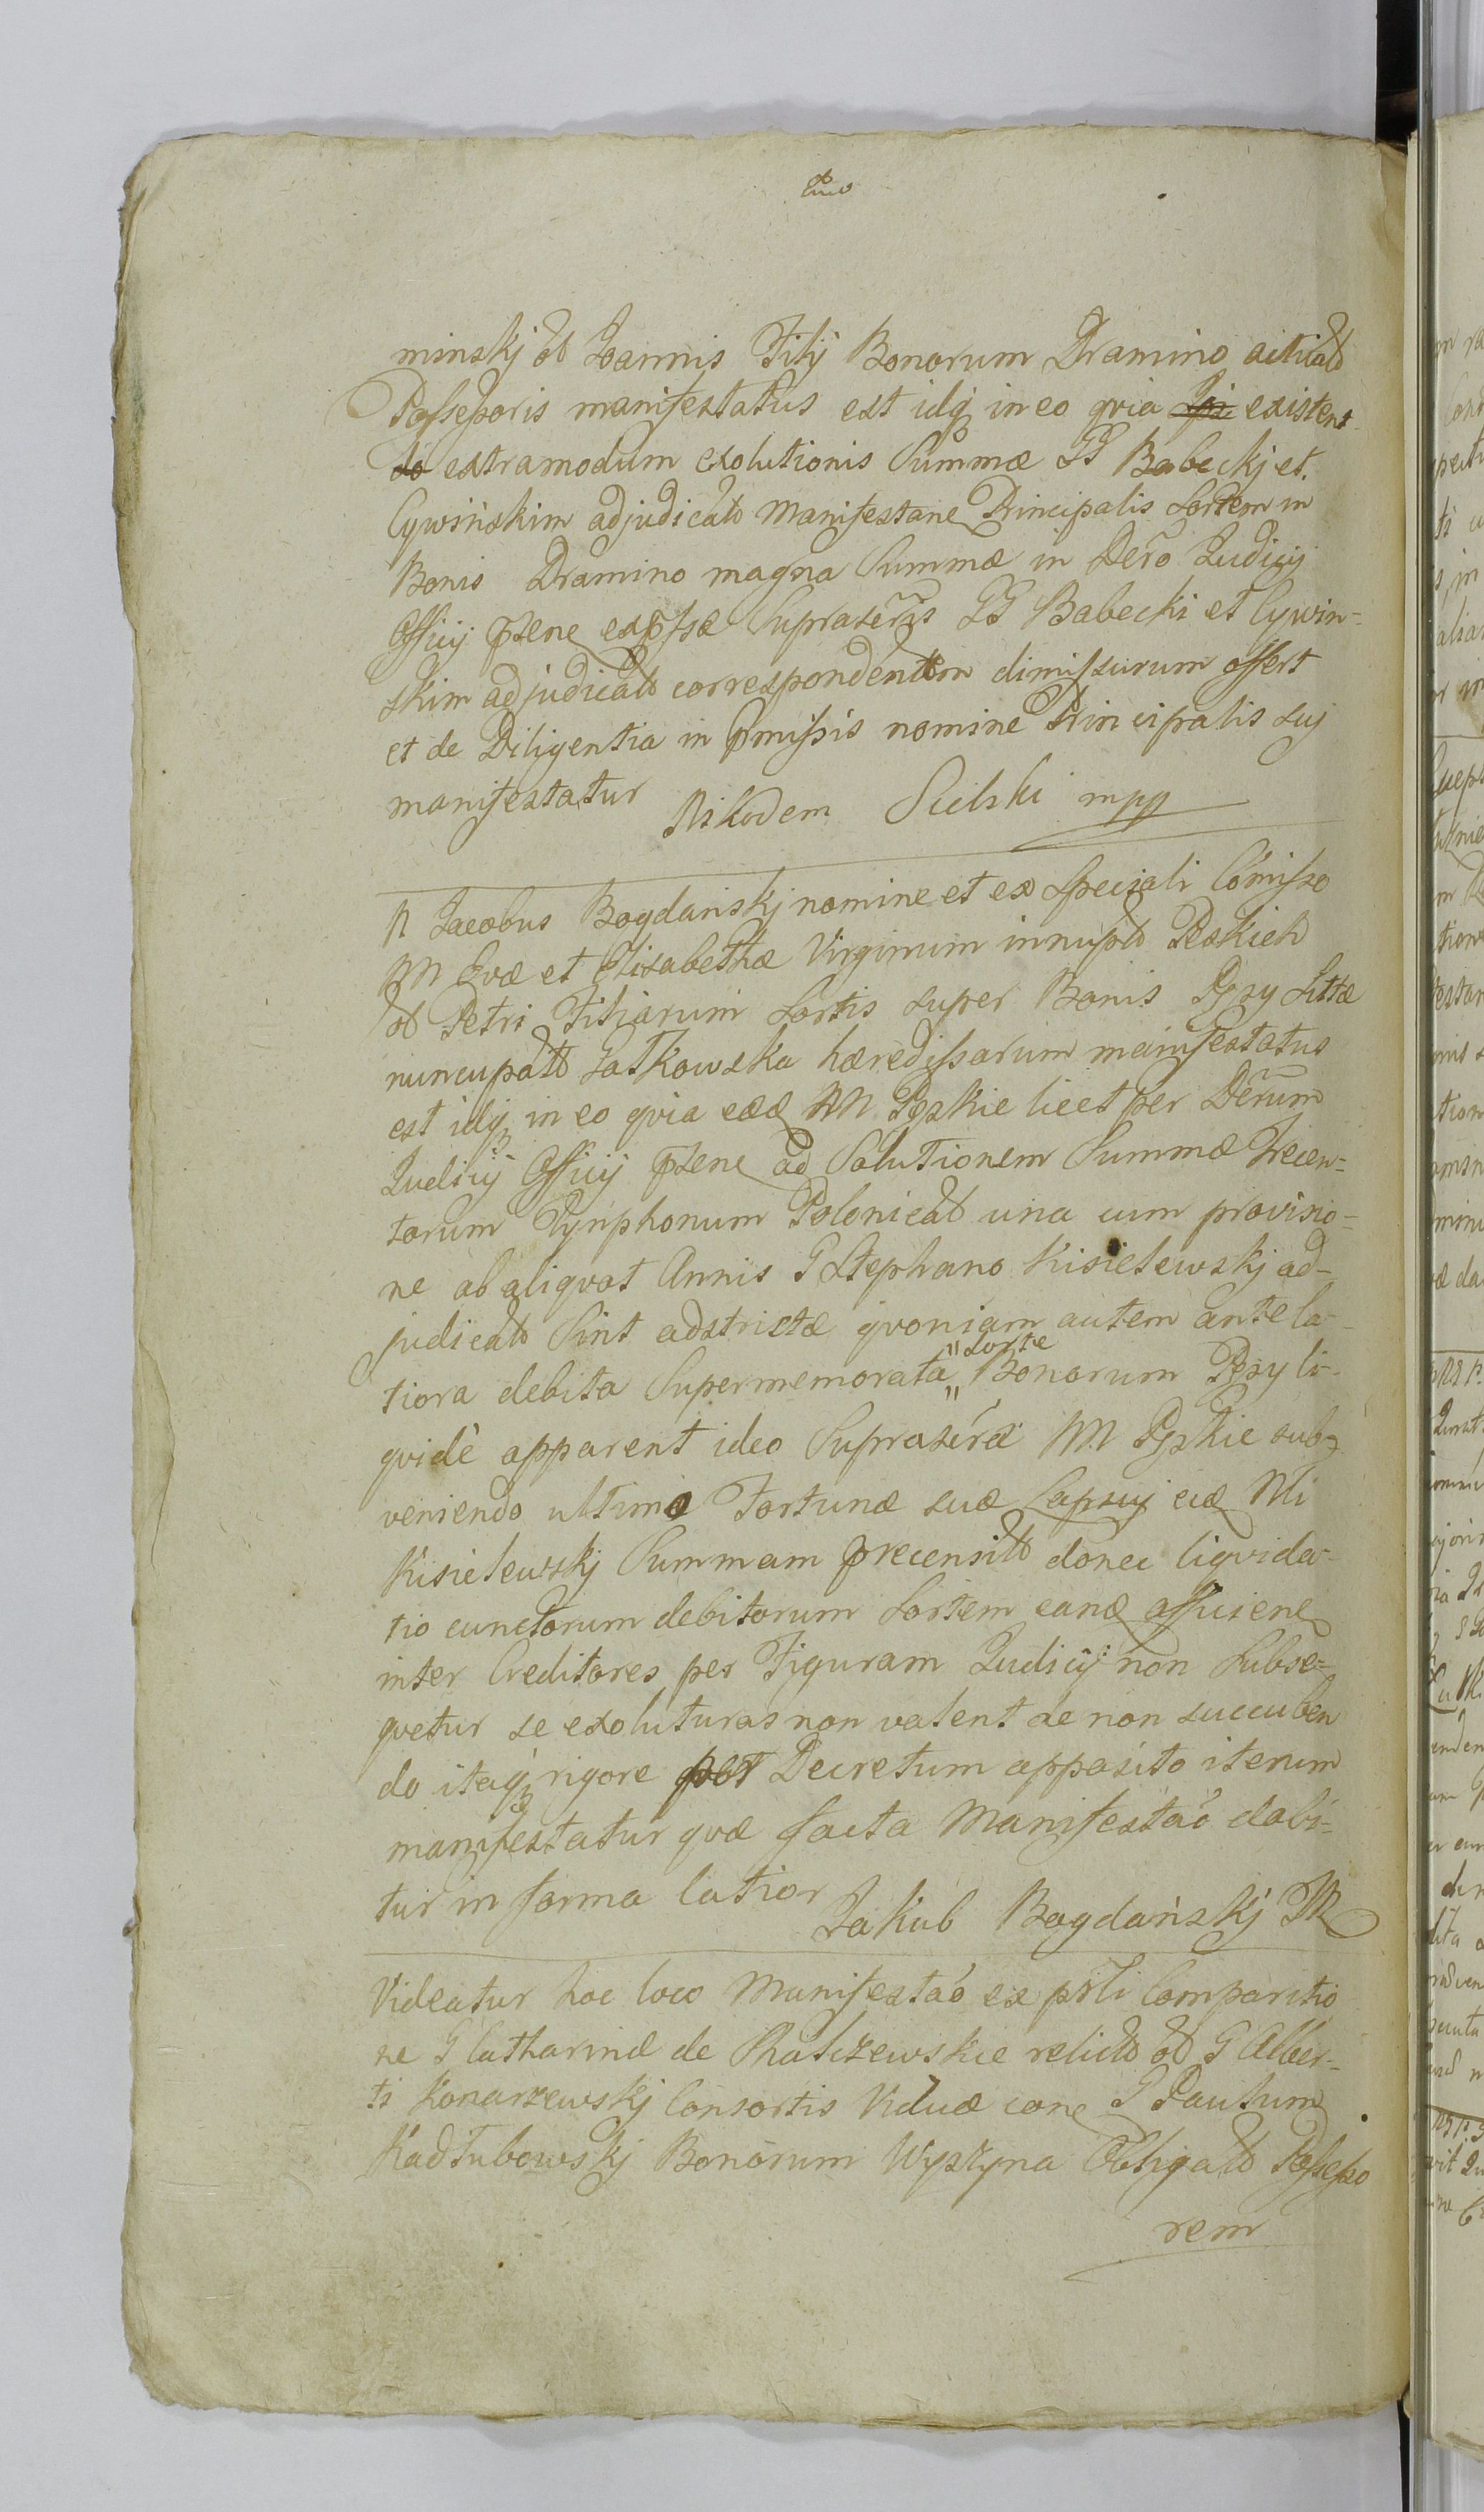 minskj ol Joannis Filij Bonorum Dramino actual
Possessoris manifestatus est idq in eo qvia existen
do extramodum exolutionis Summæ GG Babeckj et
Cywińskim adjudicato Manifestane Principalis Sortem in
Bonis Dramino magna Summæ in Decro Judicij
Officij psene expssæ Suprascris GG Babecki et Cywin=
skim adjudicato correspondentem dimissurum offert
et de Diligentia in pmissis nomine Principalis suj
manifestatur Nikodem Sielski mpp
N Jacobus Bogdanskj nomine et ex Speciali Comisso
NN Evæ et Elisabethæ Virginum innupt Peskich
ol Petri Filiarum Sortis super Bonis Pęsy Littæ
nuncupat Jatkowska hæredissarum manifestatus
est idq in eo qvia eæd NN Pęskie licet per Decrum
Judicij Officij psene ad Solutionem Summæ Trecen=
torum Tynphonum Polonical una cum provisio=
ne ab aliqvot Annis G Stephano Kisielewskj ad-
judicato Sint adstrictæ qvoniam autem ante la-
tiora debita Supermemorata " Sorte " Bonorum Pęsy li-
qvidè apparent ideo Suprascræ NN Pęskie sub=
veniendo ultimæ Fortunæ suæ Lapsuj eid Nli
Kisielewskj Summam precensit donec liqvida-
tio cunctorum debitorum Sortem eand afficiene
inter Creditores per Figuram Judicij non Subse=
qvetur se exoluturas non valent de non succuben
do itaq rigore per Decretum apposito iterum
manifestatur qvæ facta Manifestaó dabi=
tur in forma latior Jakub Bogdański
Videatur hoc loco Manifestaó ex psli Comparitio
ne G Catharinæ de relict ol G Alber=
ti Konarzewskj Consortis Viduæ cone G Paulum
Kadłubowskj Bonorum Wyszyna Obligat Possesso
rem